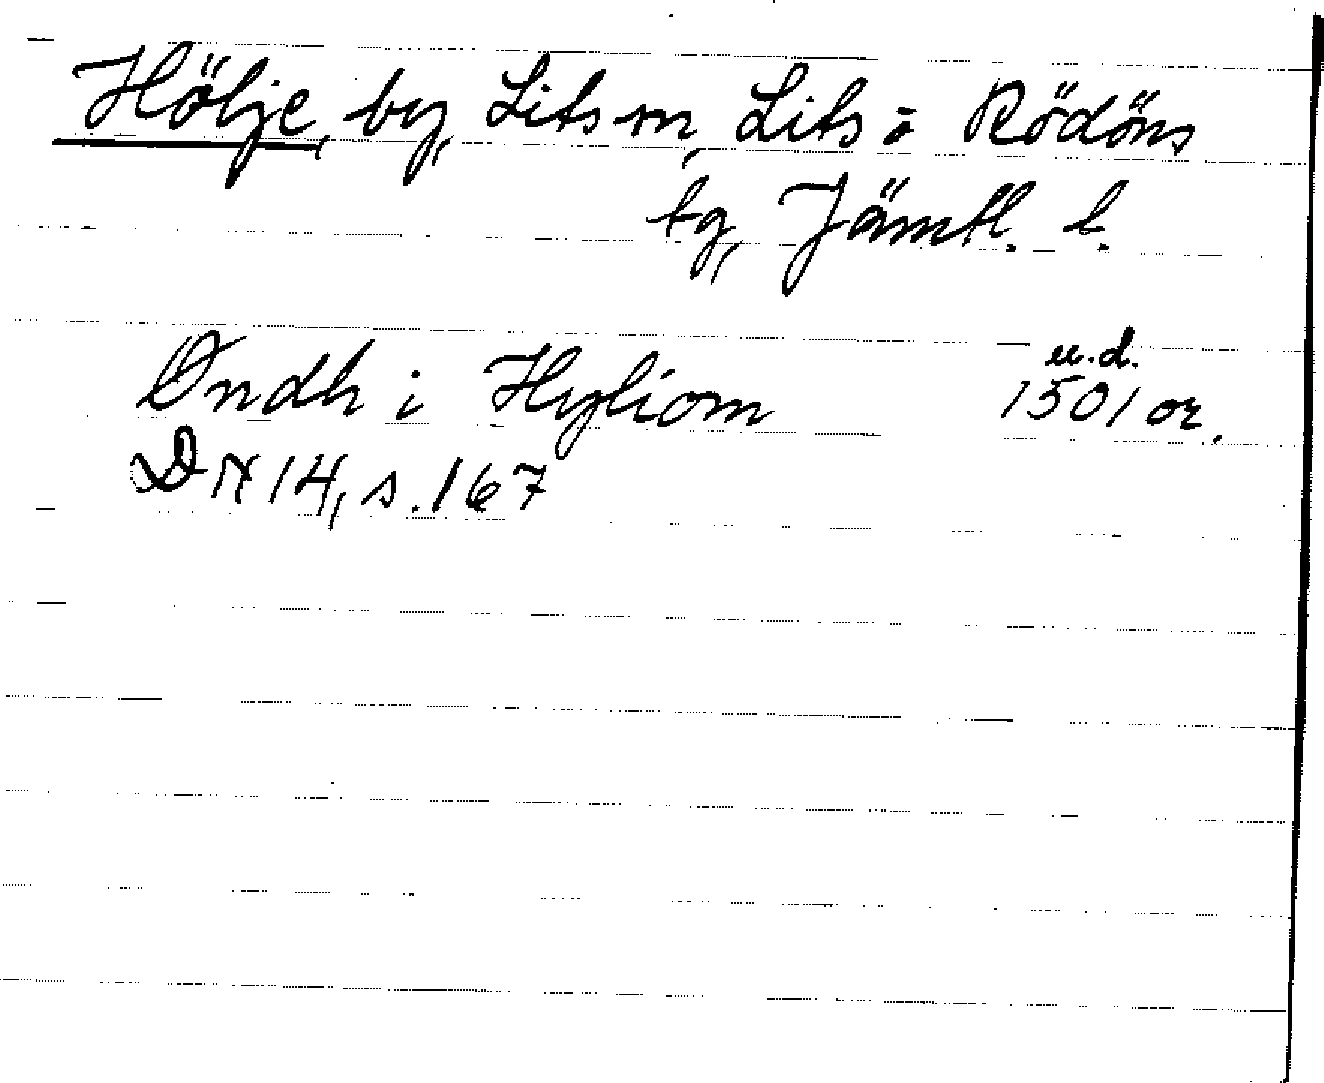 Hölje, by, Lits sn, Lits o Rödöns
tg, Jämtl. l.
u.d.
Øndh i Hyliom 1501 or.
DN 14, s. 167